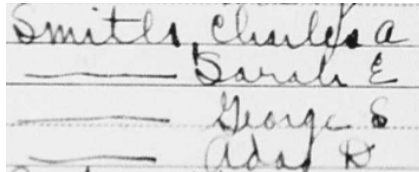 Smith, Charles A
—— Sarah E
—— George S
—— Adag D